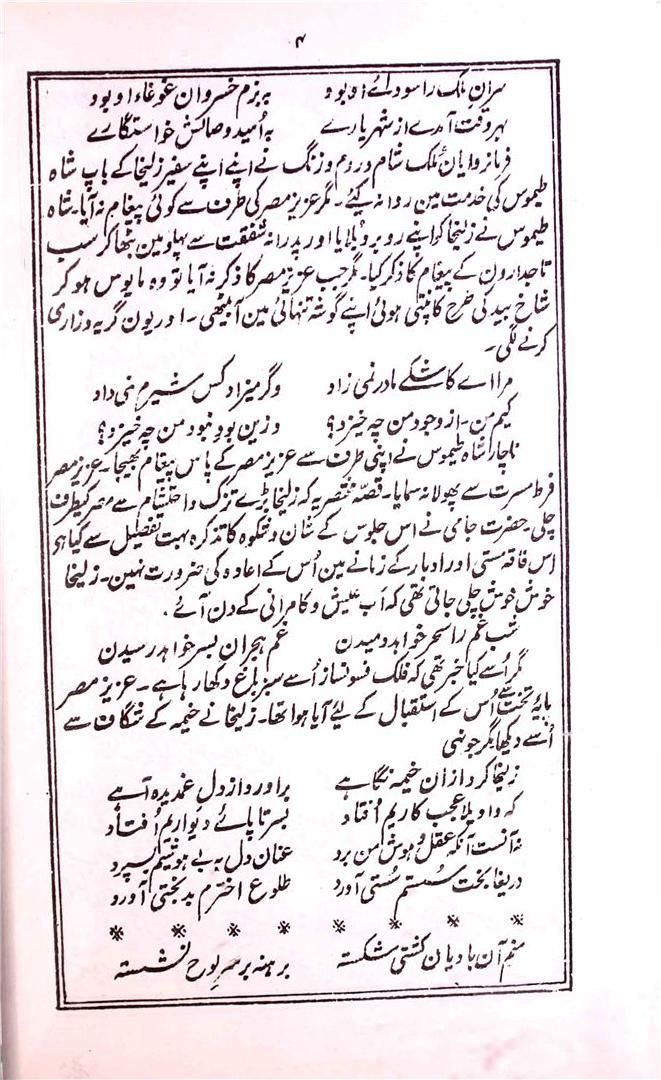 ۴
سرانِ ملک را سودائے او بود		بہ بزم خسروان غوغاء او بود
بہر وقت آمدے از شہریارے		بہ اُمید وصالش خواستگارے
فرمانروایانِ ملک شام و روم و زنگ نے اپنے اپنے سفیر زلیخا کے باپ شاہ
طیموس کی خدمت مین روانہ کیئے۔ مگر عزیز مصر کی طرف سے کوئی پیغام نہ آیا۔ شاہ
طیموس نے زلیخا کو اپنے روبرو بُلایا اور پدرانہ شفقت سے پہلو مین بٹھا کر سب
تاجدارون کے پیغام کا ذکر کیا۔ مگر جب عزیز مصر کا ذکر نہ آیا تو وہ مایوس ہو کر
شاخ بید کی طرح کانپتی ہوئی اپنے گوشہ تنہائی مین آ بیٹھی۔ اور یون گریہ و زاری
کرنے لگی۔
مرا اے کاشکے مادر نمی زاد		وگر میزاد کس شیرم نمی داد
کیم من۔ از وجود من چہ خیزد؟		وزین بود و نبود من چہ خیزد؟
ناچار شاہ طیموس نے اپنی طرف سے عزیز مصر کے پاس پیغام بھیجا۔ عزیز مصر
فرط مسرت سے پھولا نہ سمایا۔ قصّہ مختصر یہ کہ زلیخا بڑے تزک و احتشام سے مصر کیطرف
چلی۔ حضرت جامی نے اس جلوس کے شان و شکوہ کا تذکرہ بہت تفصیل سے کیا ہی
اس فاقہ مستی اور ادبار کے زمانے مین اُس کے اعادہ کی ضرورت نہین۔ زلیخا
خوش خوش چلی جاتی تھی کہ اب عیش و کامرانی کے دن آئے۔
شب غم را سحر خواہد دمیدن		غم ہجران بسر خواہد رسیدن
مگر اُسے کیا خبر تھی کہ فلک فسونساز اُسے سبز باغ دکھا رہا ہے۔ عزیز مصر
پایۂ تخت سے اُس کے استقبال کے لیئے آیا ہوا تھا۔ زلیخا نے خیمہ کے شگاف سے
اُسے دیکھا مگر جونہی
زلیخا کرد از ان خیمہ نگاہے		براورد از دل غمدیدہ آہے
کہ واویلا عجب کاریم اُفتاد		بسرتا پائے دیواریم اُفتاد
نہ آنست آنکہ عقل و ہوش من برد		عنان دل بہ بے ہوشیم بسپرد
دریغا بخت سُستم سُستی آورد		طلوع اخترم بدبختی آورد
※ ※ ※ ※ ※ ※ ※
منم آن بادبان کشتی شکستہ		برہنہ بر سر لوح نشستہ